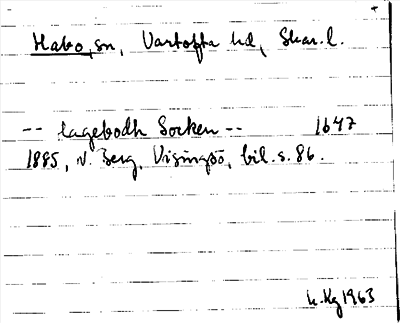 Habo, sn, Vartofta hd, Skar. l.
-- Hagebodh Socken -- 1647
1885, N. Berg, Visingsö, bil. s. 86.
1963